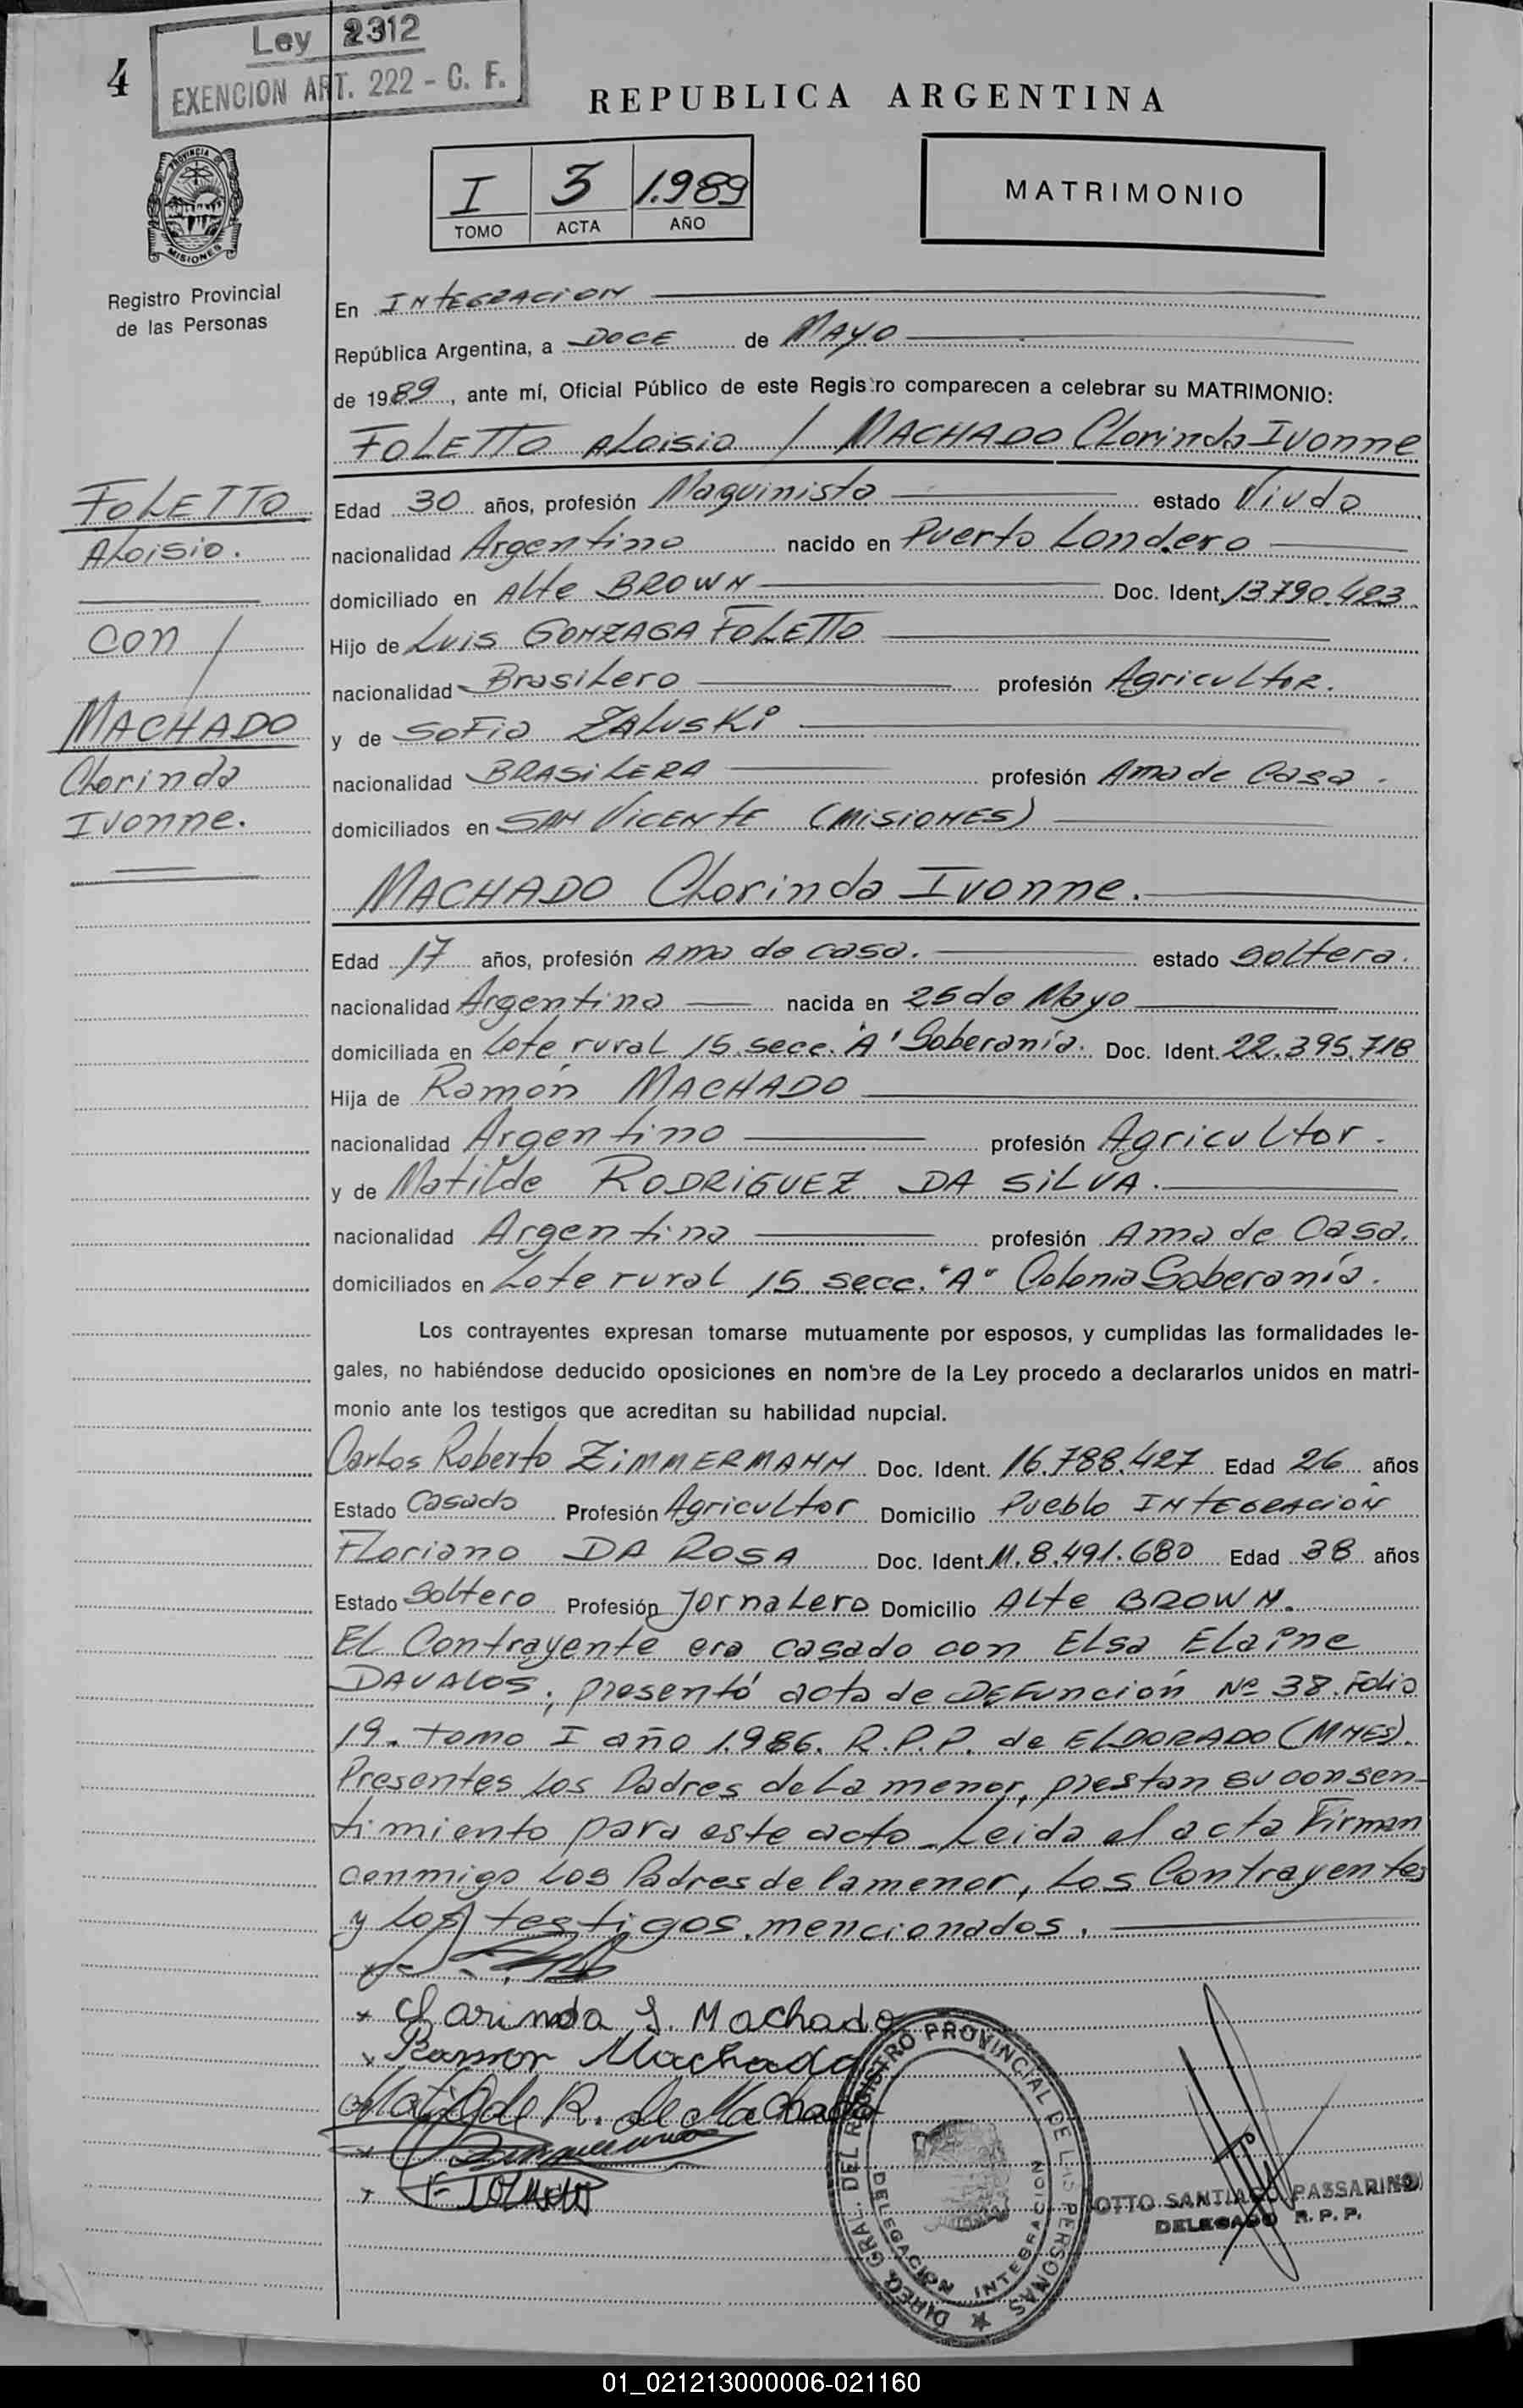 4
Ley 2312
EXENCION ART. 222 - C. F.
REPUBLICA ARGENTINA
I 3 1.989
TOMO ACTA AÑO
MATRIMONIO
PROVINCIA DE MISIONES
Registro Provincial
de las Personas
En INTEGRACION
República Argentina, a DOCE de MAYO
de 1989, ante mí, Oficial Público de este Registro comparecen a celebrar su MATRIMONIO:
FOLETTO ALoisio / MACHADO CLorinda Ivonne
FOLETTO
ALoisio.
con /
MACHADO
CLorinda
Ivonne.
Edad 30 años, profesión Maquinista estado Viudo
nacionalidad Argentino nacido en Puerto Londero
domiciliado en Alte BROWN Doc. Ident. 13.790.423
Hijo de Luis GONZAGA FOLETTO
nacionalidad BrasiLero profesión AgricuLtoR.
y de SoFia ZALUSKi
nacionalidad BRASiLERA profesión Ama de Casa.
domiciliados en SAN VicENtE (MisioNES)
MACHADO CLorinda Ivonne.
Edad 17 años, profesión Ama de casa. estado soLtera.
nacionalidad Argentina nacida en 25 de Mayo
domiciliada en Lote rural 15. secc. "A" Soberanía. Doc. Ident. 22.395.718
Hija de Ramón MACHADO
nacionalidad Argentino profesión AgricuLtor.
y de Matilde RODRiGUEZ DA SiLVA.
nacionalidad Argentina profesión Ama de Casa.
domiciliados en Lote rural 15 secc. "A" Colonia Soberanía.
Los contrayentes expresan tomarse mutuamente por esposos, y cumplidas las formalidades le-
gales, no habiéndose deducido oposiciones en nombre de la Ley procedo a declararlos unidos en matri-
monio ante los testigos que acreditan su habilidad nupcial.
CarLos Roberto ZiMMERMANN Doc. Ident. 16.788.427 Edad 26 años
Estado Casado Profesión AgricuLtor Domicilio Pueblo INtEGRACiÓN
FLoriano DA ROSA Doc. Ident. M. 8.491.680 Edad 38 años
Estado SoLtero Profesión JornaLero Domicilio ALte BROWN.
EL Contrayente era casado con ELsa ELaine
DAVALOS; presentó acta de DEFunción Nº 38. FoLio
19. tomo I año 1.986. R.P.P. de ELDORADO (MNES).
Presentes Los Padres de La menor, prestan su consen-
timiento para este acto_ Leida el acta Firman
conmigo Los Padres de la menor, Los Contrayentes
y los testigos mencionados.
Clarinda I. Machado
Ramon Machado
Matilde R. de Machado
DIREC. GRAL. DEL REGISTRO PROVINCIAL DE LAS PERSONAS
DELEGACION INTEGRACION
OTTO SANTIAGO PASSARINO
DELEGADO R. P. P.
01_021213000006-021160